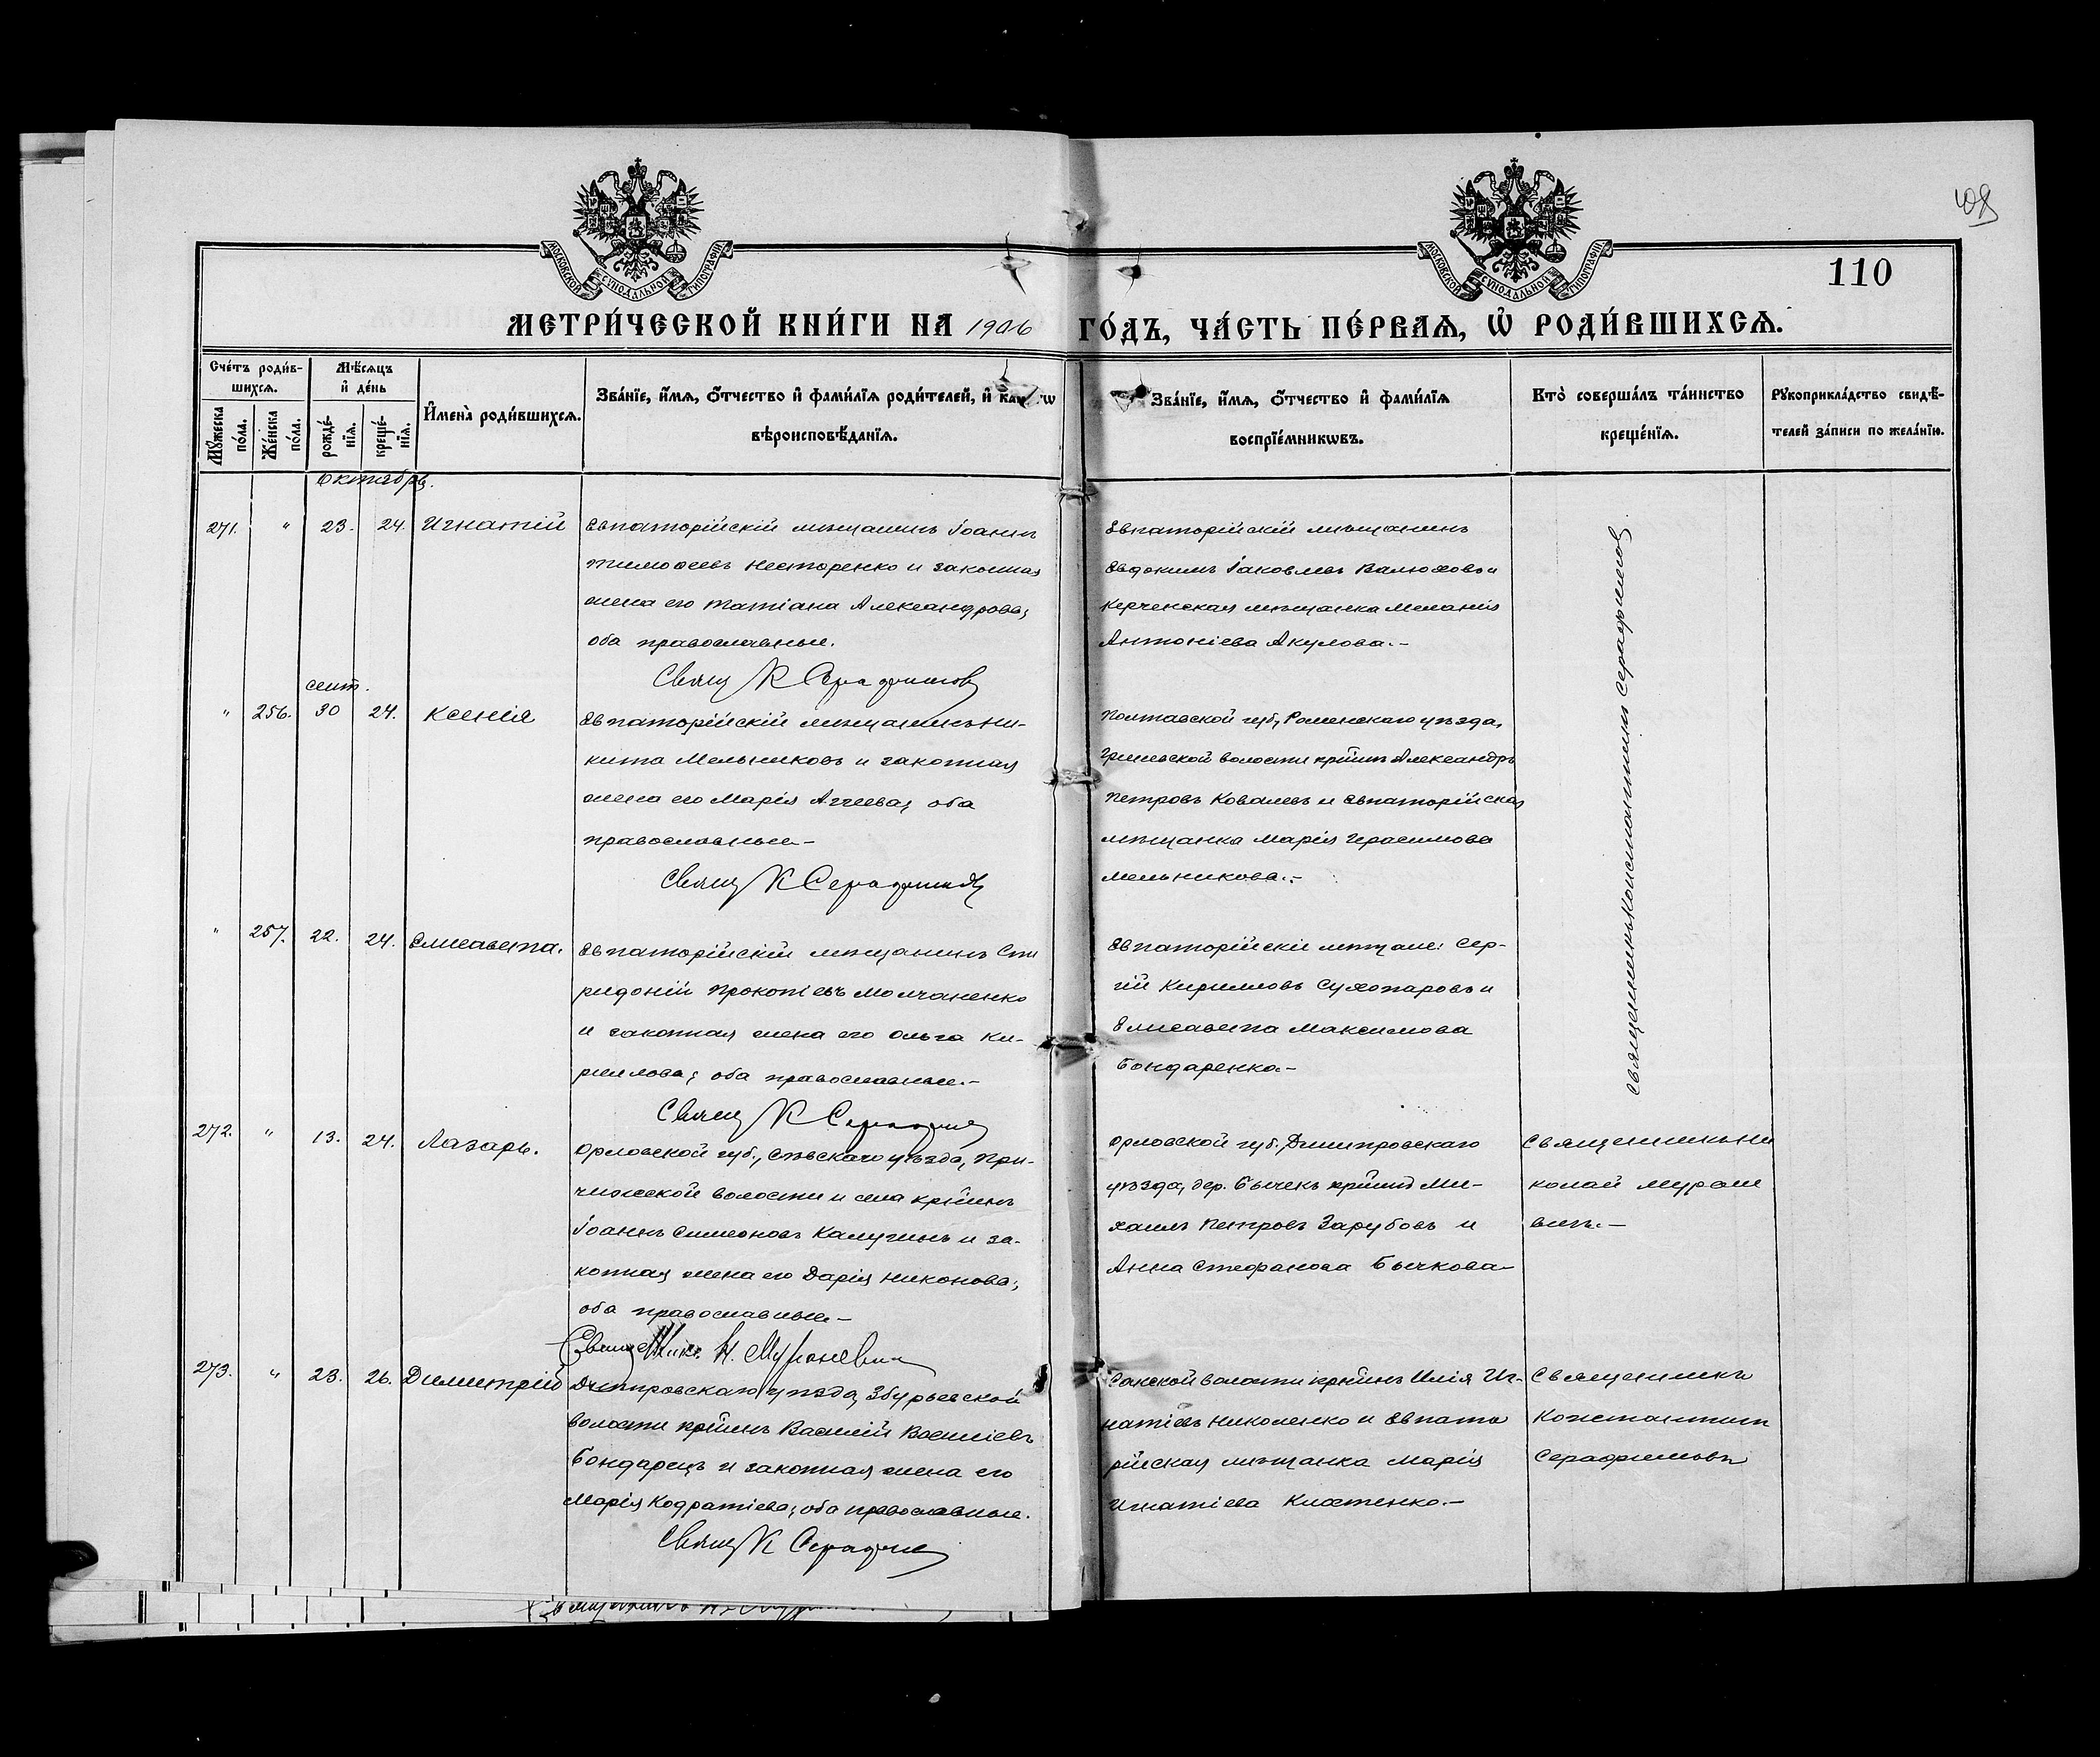 МОСКОВСКОЙ СѴНОДАЛЬНОЙ ТИПОГРАФІИ
МОСКОВСКОЙ СѴНОДАЛЬНОЙ ТИПОГРАФІИ
110
МЕТРИ́ЧЕСКОЙ КНИ́ГИ НА 1906 ГО́ДЪ, ЧА́СТЬ ПЕ́РВАѦ, Ѽ РОДИ́ВШИХСѦ.
Сче́тъ роди́в-
шихсѧ.
Мꙋ́жеска по́ла.
Же́нска по́ла.
Мѣ́сѧцъ
и҆ де́нь
рожде́-
нїѧ.
креще́-
нїѧ.
И҆мена̀ роди́вшихсѧ.
Зва́нїе, и҆́мѧ, ѻ҆́тчество и҆ фами́лїѧ роди́телей, и҆
вѣроисповѣ́данїѧ.
Зва́нїе, и҆́мѧ, ѻ҆́тчество и҆ фами́лїѧ
воспрїе́мникѡвъ.
Кто̀ соверша́лъ та́инство
креще́нїѧ.
Рꙋкоприкла́дство свидѣ́-
телей за́писи по жела́нїю.
Октябрь.
271. " 23. 24. Игнатій
Евпаторійскій мѣщанинъ Іоаннъ
Тимоѳеевъ Нестеренко и законная
жена его Татіана Александрова;
оба православные.
Свящ К Серафимовъ
Евпаторійскій мѣщанинъ
Евдокимъ Іаковлевъ Валюховъ и
Керченская мѣщанка Меланія
Антоніева Акулова.-
Священникъ Константинъ Серафимовъ.
сент.
" 256. 30 24. Ксенія
Евпаторійскій мѣщанинъ Ни-
кита Мельниковъ и законная
жена его Марія Аггеева; оба
православные-
Свящ К Серафимовъ
Полтавской губ, Роменскаго уѣзда,
волости крнинъ Александръ
Петровъ Ковалевъ и Евпаторійская
мѣщанка Марія Герасимова
Мельникова.-
" 257. 22. 24. Елисавета.
Евпаторійскій мѣщанинъ Спи
ридоній Прокопіевъ Молчаненко
и законная жена его Ольга Ки-
риллова; оба православные.-
Свящ К Серафим
Евпаторійскіе мѣщане: Сер-
гій Кирилловъ Сухопаровъ и
Елисавета Максимова
Бондаренко.-
272. " 13. 24. Лазарь.
Орловской губ., Сѣвскаго уѣзда, При-
чижской волости и села крнинъ
Іоаннъ Симеоновъ Калугинъ и за-
конная жена его Дарія Никонова;
оба православные-
Н. Мурашевичъ
Орловской губ., Дмитровскаго
уѣзда, дер. Бычекъ Ми-
хаилъ Петровъ Зарубовъ и
Анна Стефанова Бычкова-
Священникъ Ни
колай Мураше
вичъ.-
273. " 23. 26. Димитрій
Днѣпровскаго уѣзда, Збурьевской
волости крнинъ Василій Василіевъ
Бондарецъ и законная жена его
Марія Кодратіева; оба православные.
Свящ К Серафим
Сакской волости крнинъ Илія Иг-
натіевъ Николенко и Евпато
рійская мѣщанка Марія
Игнатіева
Священникъ
Константинъ
Серафимовъ